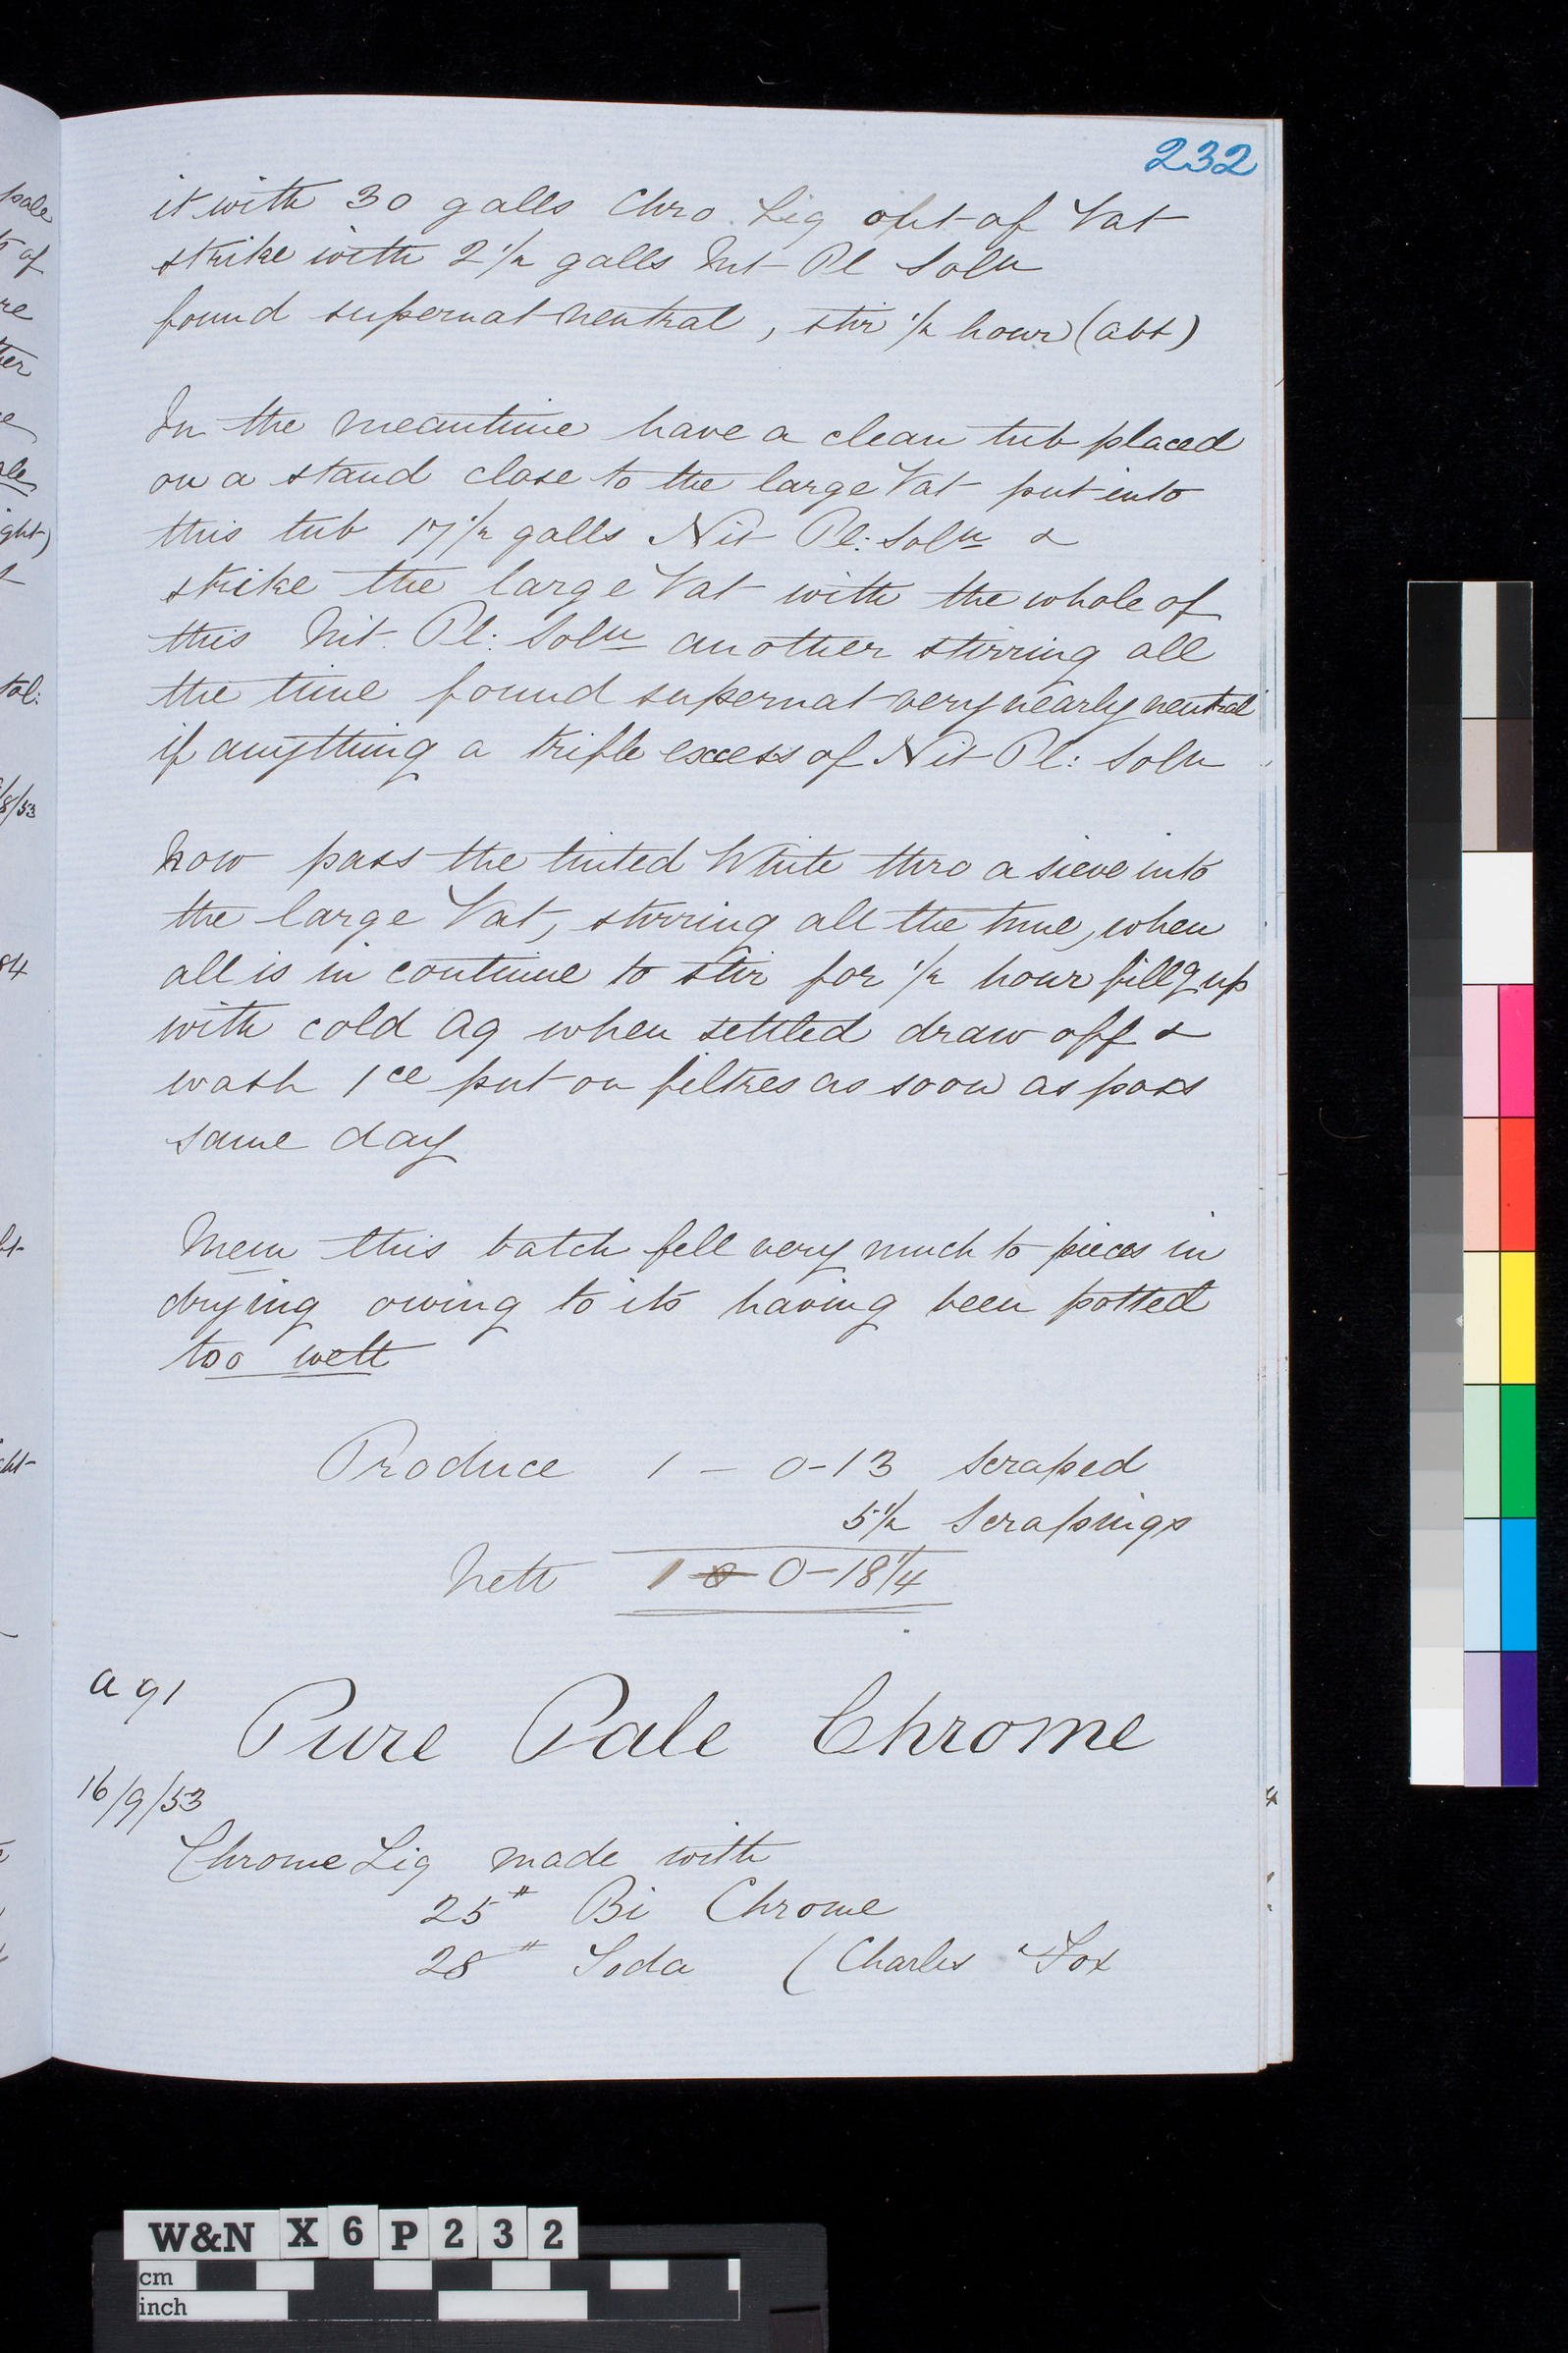 232
it with 30 galls Chro Liq out of Vat
strike with 2 1/2 galls Nit Pl Soln
found supernat neutral, stir 1/2 hour (abt)
In the meantime have a clean tub placed
on a stand close to the large Vat put into
this tub 17 1/2 galls Nit Pl: Soln &
strike the large Vat with the whole of
this Nit. Pl: Soln another stirring all
the time found supernat very nearly neutral
if anything a trifle excess of Nit Pl: Soln
Now pass the tinted White thro a sieve into
the large Vat, stirring all the time, when
all is in continue to stir for 1/2 hour fillg up
with cold Aq when settled draw off &
wash 1ce put on filtres as soon as poss
same day
Mem this batch fell very much to pieces in
drying owing to its having been potted
too wett
Produce 1 - 0-13 scraped
5 1/2 Scrapings
Nett 1 0-18 1/4
a 91
Pure Pale Chrome
16/9/53
Chrome Liq made with
25# Bi Chrome
28# Soda (Charles Fox
pale
of
re
ther
ght)
tal:
/8/53
84
ht
ght
W&N X6P232
cm
inch